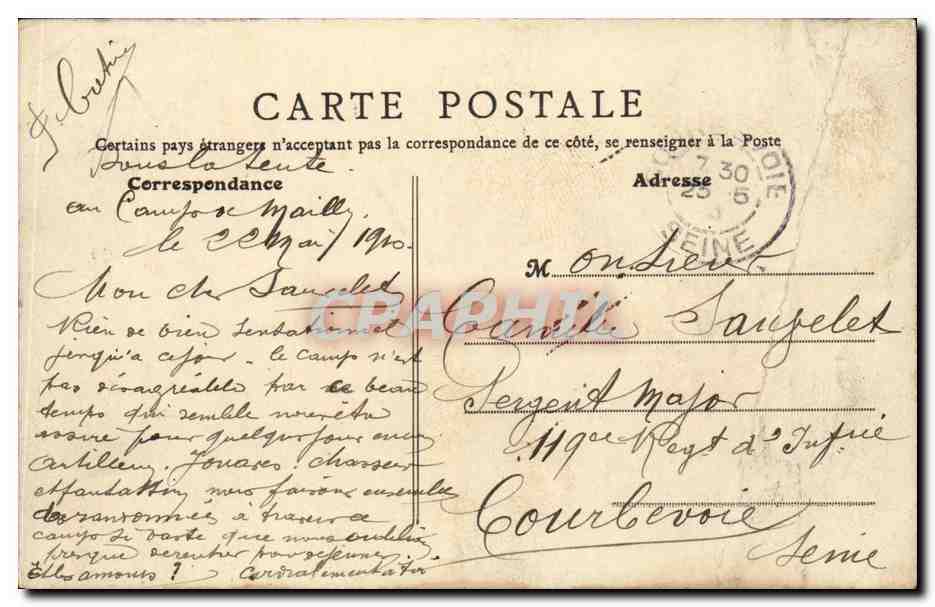 CARTE POSTALE
Certains pays étrangers n'acceptant pas la correspondance de ce côté, se renseigner à la Poste
sous la tente
Correspondance
au Camp de Mailly
le 22 Mai 1910
Mon cher Sauvelet
Rien de bien sensationnel
jusqu'a ce jour - le camp n'est
pas désagréable par ce beau
temps qui semble nous être
assuré pour quelques jours encore
artilleurs, chasseurs
et fantassins nous faisons ensemble
des randonnées à travers ce
camp si vaste que nous oublions
presque de rentrer pour déjeuner.
Et les amours ? Cordialement à toi
Adresse
COURBEVOIE
7 30
23 5
SEINE
Monsieur
Camille Sauvelet
Sergent Major
119e Regt d'Infie
Courbevoie
Seine
CPAPHIL